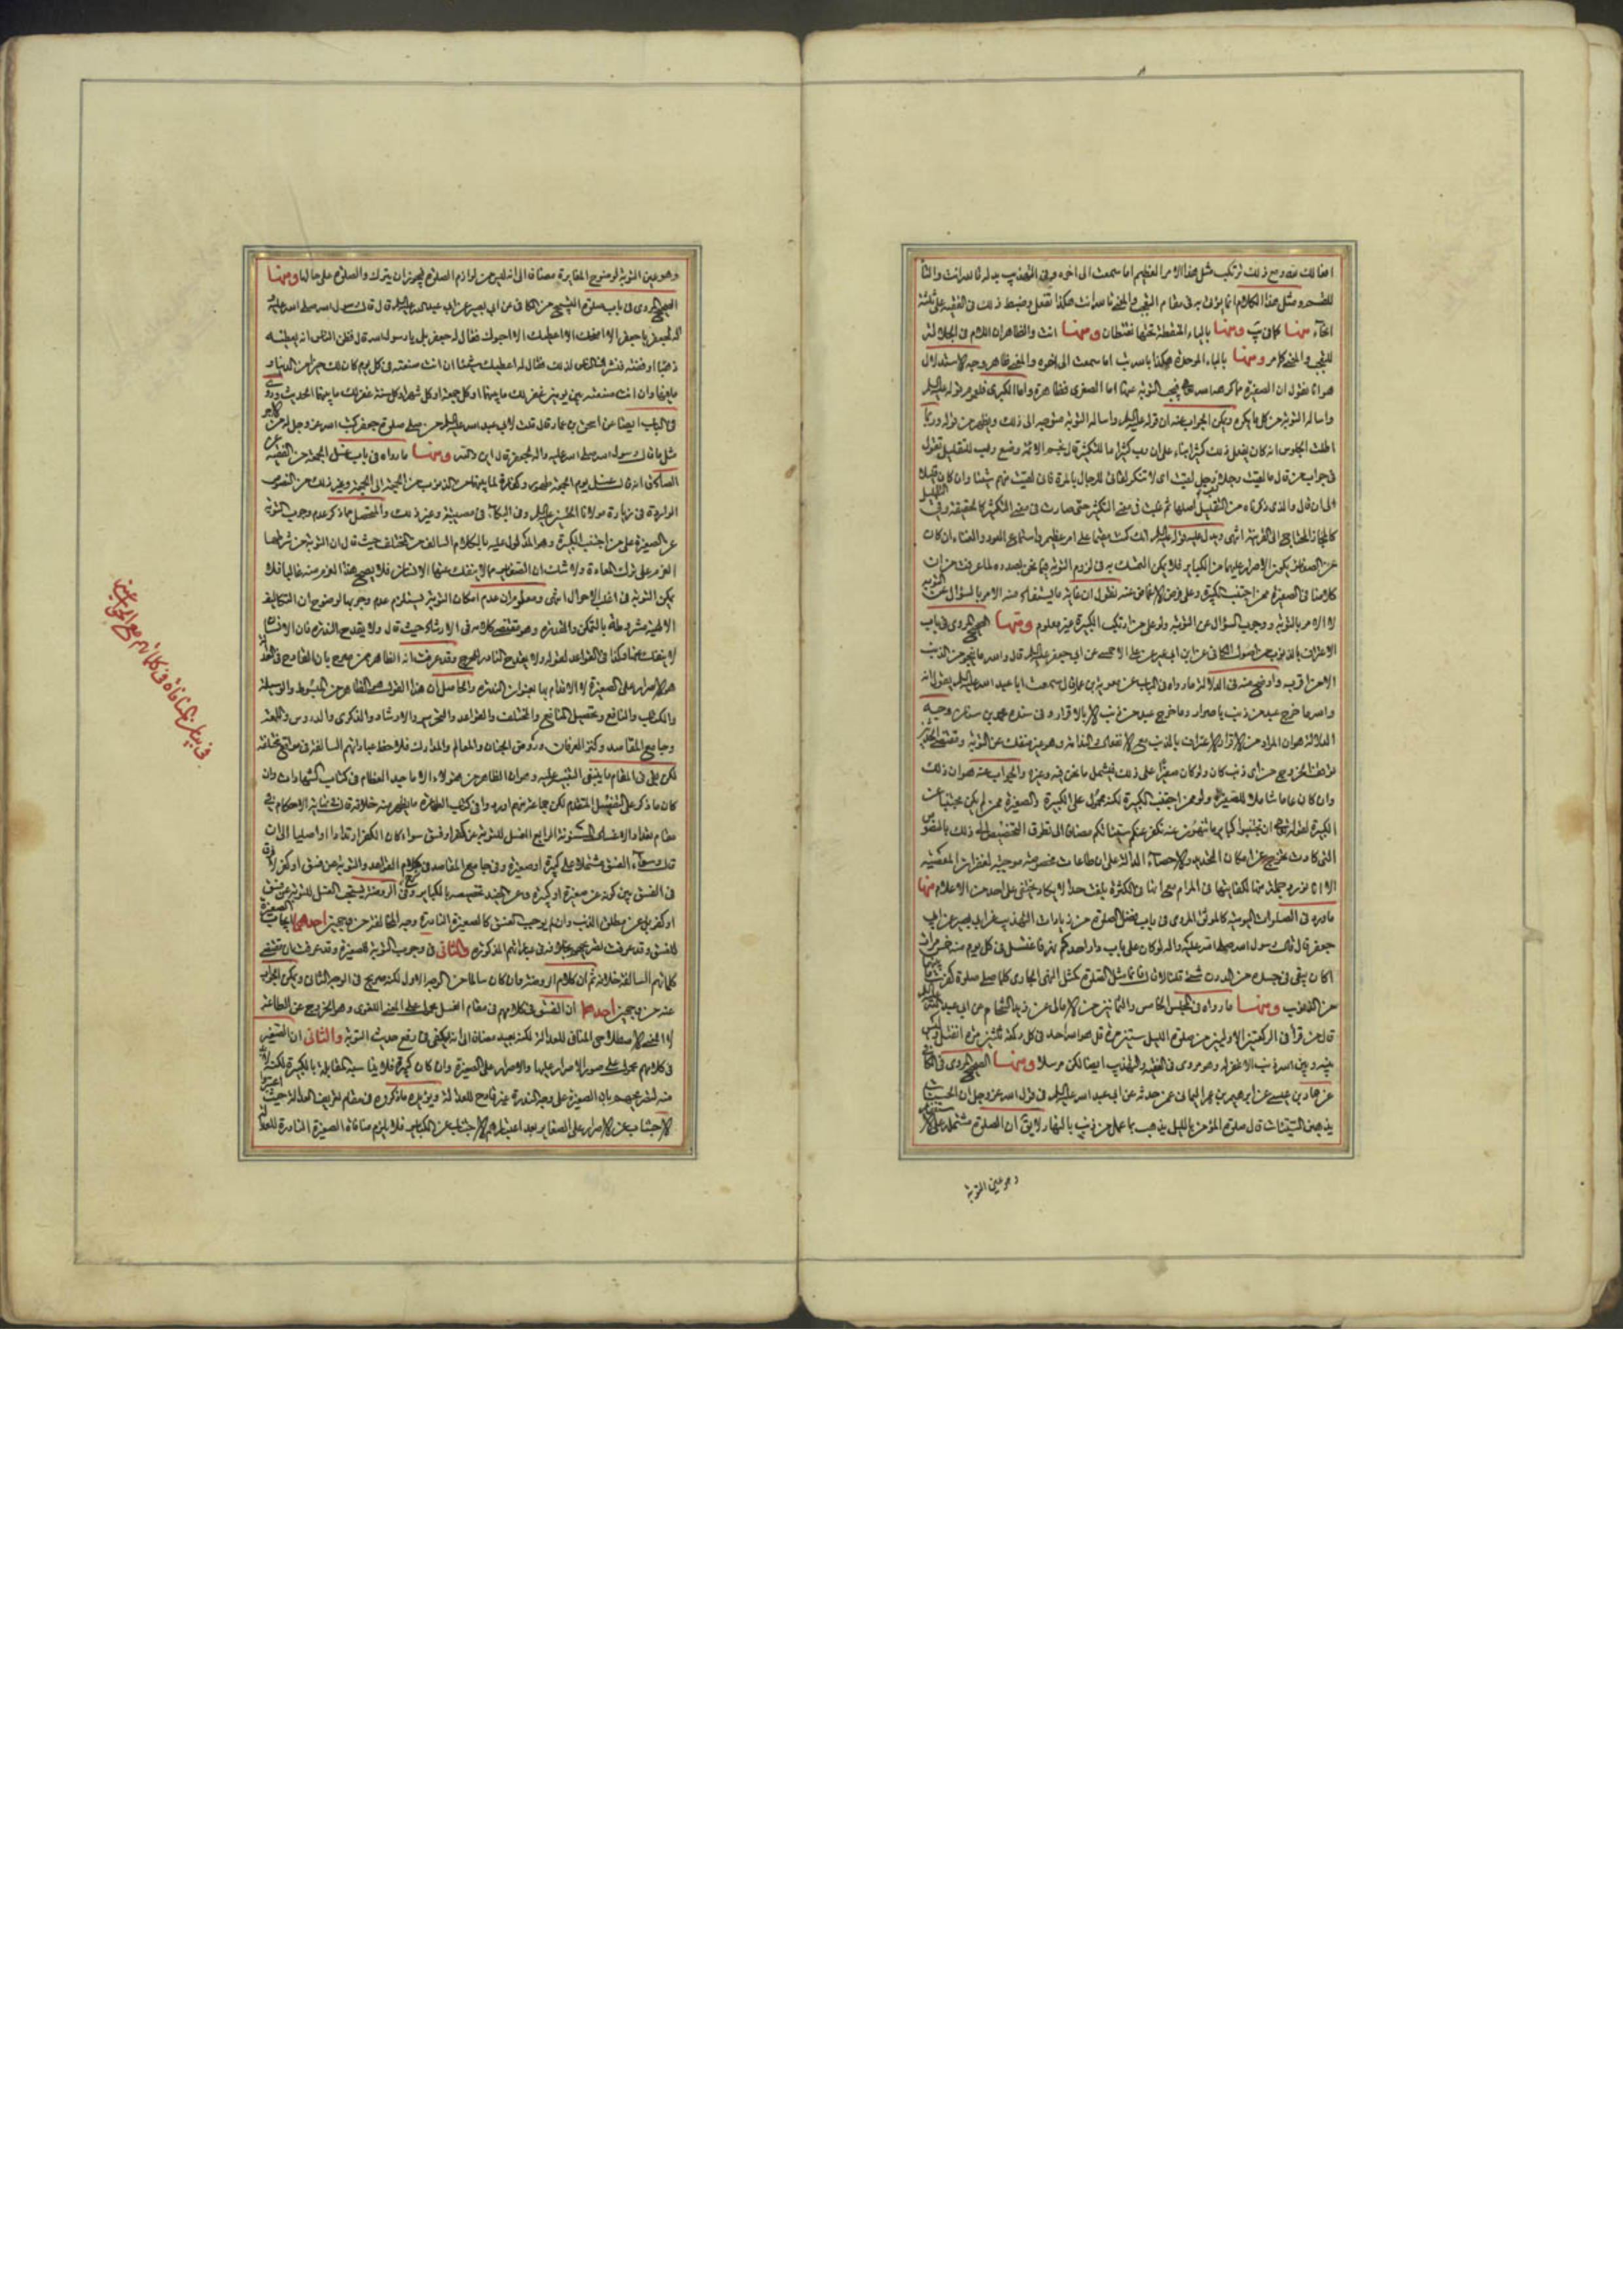 افعالك ومع ذلك ترتكب مثل هذا الامر العظيم اما سمعت الى اخره وفى التهذيب بدله تالله انت والتا
للقسم ومثل هذا الكلام انما يؤتى به فى مقام التعجب والمعنى تالله انت هكذا تفعل وضبط ذلك فى الفقيه على ثلثة
انحاء منها كما فى يب ومنها بالياء المنقطة تحتها نقطتان ومنها انت والظاهر ان اللام فى الجلالة
للتعجب والمعنى كما مر ومنها بالباء الموحدة هكذا بالله انت اما سمعت الى اخره والمعنى ظاهر وجه الاستدلال
هو انا نقول ان الصغيرة مما كرهه الله تعالى فيجب التوبة عنها اما الصغرى فظاهرة واما الكبرى فلعموم قوله عليه السلم
واساله التوبة من كل ما يكره ويمكن الجواب عنه ان قوله عليه السلم واساله التوبة متوجه الى ذلك ويظهر من قوله وربما
اطلت الجلوس انه كان يفعل ذلك كثيرا بناء على ان رب كثيرا ما للتكثير قال نجم الائمة وضع رب للتقليل تقول
فى جواب من قال ما لقيت رجلا رب رجل لقيت اى لا تنكر لقائى للرجال بالمرة فانى لقيت منهم شيئا وان كان قليلا
الى ان قال والذى ذكرناه من التقليل اصلها ثم غلبت فى معنى التكثير حتى صارت فى معنى التكثير كالحقيقة وفى التقليل
كالمجاز المحتاج الى القرينة انتهى ويدل عليه قوله عليه السلم انك كنت مقيما على امر عظيم واستماع العود والغناء ان كان
من الصغائر يكون الاصرار عليهما من الكبائر فلا يمكن التمسك به فى لزوم التوبة فيما نحن بصدده لما عرفت من ان
كلامنا فى الصغيرة ممن اجتنب الكبيرة وعلى فرض الاغماض عنه نقول ان غاية ما يستفاد منه الامر بالسؤال عن التوبة
لا الامر بالتوبة ووجوب السؤال عن التوبة ولو على من ارتكب الكبيرة غير معلوم ومنها الصحيح المروى فى باب
الاعتراف بالذنوب من اصول الكافى عن ابن ابى عمير عن على الاحمسى عن ابى جعفر عليه السلم قال والله ما ينجو من الذنب
الا من اقر به واوضح منه فى الدلالة ما رواه فى الباب عن معوية بن عمار قال سمعت ابا عبد الله عليه السلم يقول انه
والله ما خرج عبد من ذنب باصرار وما خرج عبد من ذنب الا بالاقرار وفى سنده محمد بن سنان وجه
الدلالة هو ان المراد من الاقرار الاعتراف بالذنب مع الانفعال والندامة وهو غير منفك عن التوبة ومقتضى الخبر
توقف الخروج من اى ذنب كان ولو كان صغيرا على ذلك فيشمل ما نحن فيه وغيره والجواب عنه هو ان ذلك
وان كان عاما شاملا للصغيرة ولو ممن اجتنب الكبيرة لكنه محمول على الكبيرة والصغيرة ممن لم يكن مجتنبا عن
الكبيرة لقوله تعالى ان تجتنبوا كبائر ما تنهون عنه نكفر عنكم سيئاتكم مضافا الى تطرق التخصيص الى ذلك بالنصوص
التى كادت تخرج عن امكان التحديد والاحصاء الدالة على ان طاعات مخصوصة موجبة لغفران المعصية
الا انا نورد جملة منها لكفايتها فى المرام مع انها فى الكثرة بلغت حدا لا يكاد يختفى على احد من الاعلام منها
ما ورد فى الصلوات اليومية كالموثق المروى فى باب فضل الصلوة من زيادات التهذيب عن ابى بصير عن ابى
جعفر قال قال رسول الله صلى الله عليه واله لو كان على باب دار احدكم نهر فاغتسل فى كل يوم منه خمس مرات
اكان يبقى فى جسده من الدرن شىء قلنا لا قال فانما مثل الصلوة كمثل النهر الجارى كلما صلى صلوة كفرت ما بينهما
من الذنوب ومنها ما رواه فى المجلس الخامس والثمانين من الامالى عن زيد الشحام عن ابى عبد الله عليه السلم
قال من قرأ فى الركعتين الاوليين من صلوة الليل ستين مرة قل هو الله احد فى كل ركعة ثلثين مرة انفتل وليس
بينه وبين الله ذنب الا غفر له وهو مروى فى الفقيه والتهذيب ايضا لكن مرسلا ومنها الصحيح المروى فى الكافى
عن حماد بن عيسى عن ابراهيم بن عمر اليمانى عمن حدثه عن ابى عبد الله عليه السلم فى قول الله عز وجل ان الحسنات
يذهبن السيئات قال صلوة المؤمن بالليل يذهب بما عمل من ذنب بالنهار لا يق ان الصلوة مشتملة على
وهو عين التوبة
وهو عين التوبة لوضوح المغايرة مضافا الى انه ليس من لوازم الصلوة فيجوز ان يترك والصلوة على حالها ومنها
الصحيح المروى فى باب صلوة التسبيح من الكافى عن ابى بصير عن ابى عبد الله عليه السلم قال قال رسول الله صلى الله عليه
اله لجعفر يا جعفر الا امنحك الا اعطيك الا احبوك فقال له جعفر بلى يا رسول الله قال فظن الناس انه يعطيه
ذهبا او فضة فتشرف الناس لذلك فقال له اعطيك شيئا ان انت صنعته فى كل يوم كان لك خيرا من الدنيا و
ما فيها وان انت صنعته بين يومين غفر لك ما بينهما او كل جمعة او كل شهر او كل سنة غفر لك ما بينهما الحديث وروى
فى الباب ايضا عن اسحق بن عمار قال قلت لابى عبد الله عليه السلم من صلى صلوة جعفر كتب الله عز وجل له من الاجر
مثل ما قال رسول الله صلى الله عليه واله لجعفر قال اى والله ومنها ما رواه فى باب غسل الجمعة من الفقيه عن
الصادق انه قال غسل يوم الجمعة طهور وكفارة لما بينهما من الذنوب من الجمعة الى الجمعة وغير ذلك من النصوص
الواردة فى زيارة مولانا الحسين عليه السلم وفى البكاء فى مصيبته وغير ذلك والمتحصل مما ذكر عدم وجوب التوبة
عن الصغيرة على من اجتنب الكبيرة وهو المدلول عليه بالكلام السالف من المختلف حيث قال ان التوبة من شرطها
العزم على ترك المعاودة ولا شك ان الصغائر مما لا ينفك عنها الانسان فلا يصح هذا العزم منه غالبا فلا
يمكن التوبة فى اغلب الاحوال انتهى ومعلوم ان عدم امكان التوبة يستلزم عدم وجوبها لوضوح ان التكاليف
الالهية مشروطة بالتمكن والقدرة وهو مقتضى كلامه فى الارشاد حيث قال ولا يقدح الندرة فان الانسان
لا ينفك منها وكذا فى القواعد لقوله ولا يقدح النادر للحرج وقد عرفت انه الظاهر ممن صرح بان القادح فى العدالة
هو الاصرار على الصغيرة لا الالمام بها بعنوان الندرة والحاصل ان هذا القول هو الظاهر من المبسوط والوسيلة
والمهذب والنافع وتحصيل المنافع والمختلف والقواعد والتحرير والارشاد والذكرى والدروس واللمعة
وجامع المقاصد وكنز العرفان وروض الجنان والمعالم والمدارك فلاحظ عباراتهم السالفة فى مواضع مختلفة
لكن بقى فى المقام ما ينبغى التنبيه عليه وهو ان الظاهر من هؤلاء الاماجيد العظام فى كتاب الشهادات وان
كان ما ذكر على التفصيل المتقدم لكن جماعة منهم اوردوا فى كتب الطهارة ما يظهر منه خلافه قال فى نهاية الاحكام فى
مقام تعداد الاغسال المسنونة الرابع الغسل للتوبة عن كفر او فسق سواء كان الكفر ارتدادا او اصليا الى ان
قال وسواء الفسق مشتملا على كبيرة او صغيرة وفى جامع المقاصد فى كلام القواعد والتوبة عن فسق او كفر لا فرق
فى الفسق بين كونه عن صغيرة او كبيرة وعن المفيد تخصيصه بالكبائر وفى الروضة يستحب الغسل للتوبة عن فسق
او كفر بل عن مطلق الذنب وان لم يوجب الفسق كالصغيرة النادرة وجه المخالفة من وجهين احدهما ايجاب الصغيرة
للفسق وقد عرفت تصريحهم بخلافه فى عباراتهم المذكورة والثانى فى وجوب التوبة للصغيرة وقد عرفت ان مقتضى
كلماتهم السالفة خلافه ثم ان كلام الروضة وان كان سالما من الوجه الاول لكنه صريح فى الوجه الثانى ويمكن الجواب
عنه من وجهين احدهما ان الفسق فى كلامهم فى مقام الغسل محمول على المعنى اللغوى وهو الخروج عن الطاعة
لا المعنى الاصطلاحى المنافى للعدالة لكنه بعيد مضافا الى انه لا يكفى فى رفع حديث التوبة والثانى ان الصغيرة
فى كلامهم محمولة على صورة الاصرار عليها والاصرار على الصغيرة وان كان كبيرة فلا يناسبه المقابلة بالكبيرة لكنه
منه لتصريحهم بان الصغيرة على وجه الندرة غير قادح للعدالة ويؤيده ما ذكروه فى مقام تعريف العدالة حيث اعتبروا
الاجتناب عن الاصرار على الصغائر بعد اعتبارهم الاجتناب عن الكبائر فلا يلزم منافاة الصغيرة النادرة للعدالة
فى بيان المنافاة فى كلماتهم مع الجواب عنه